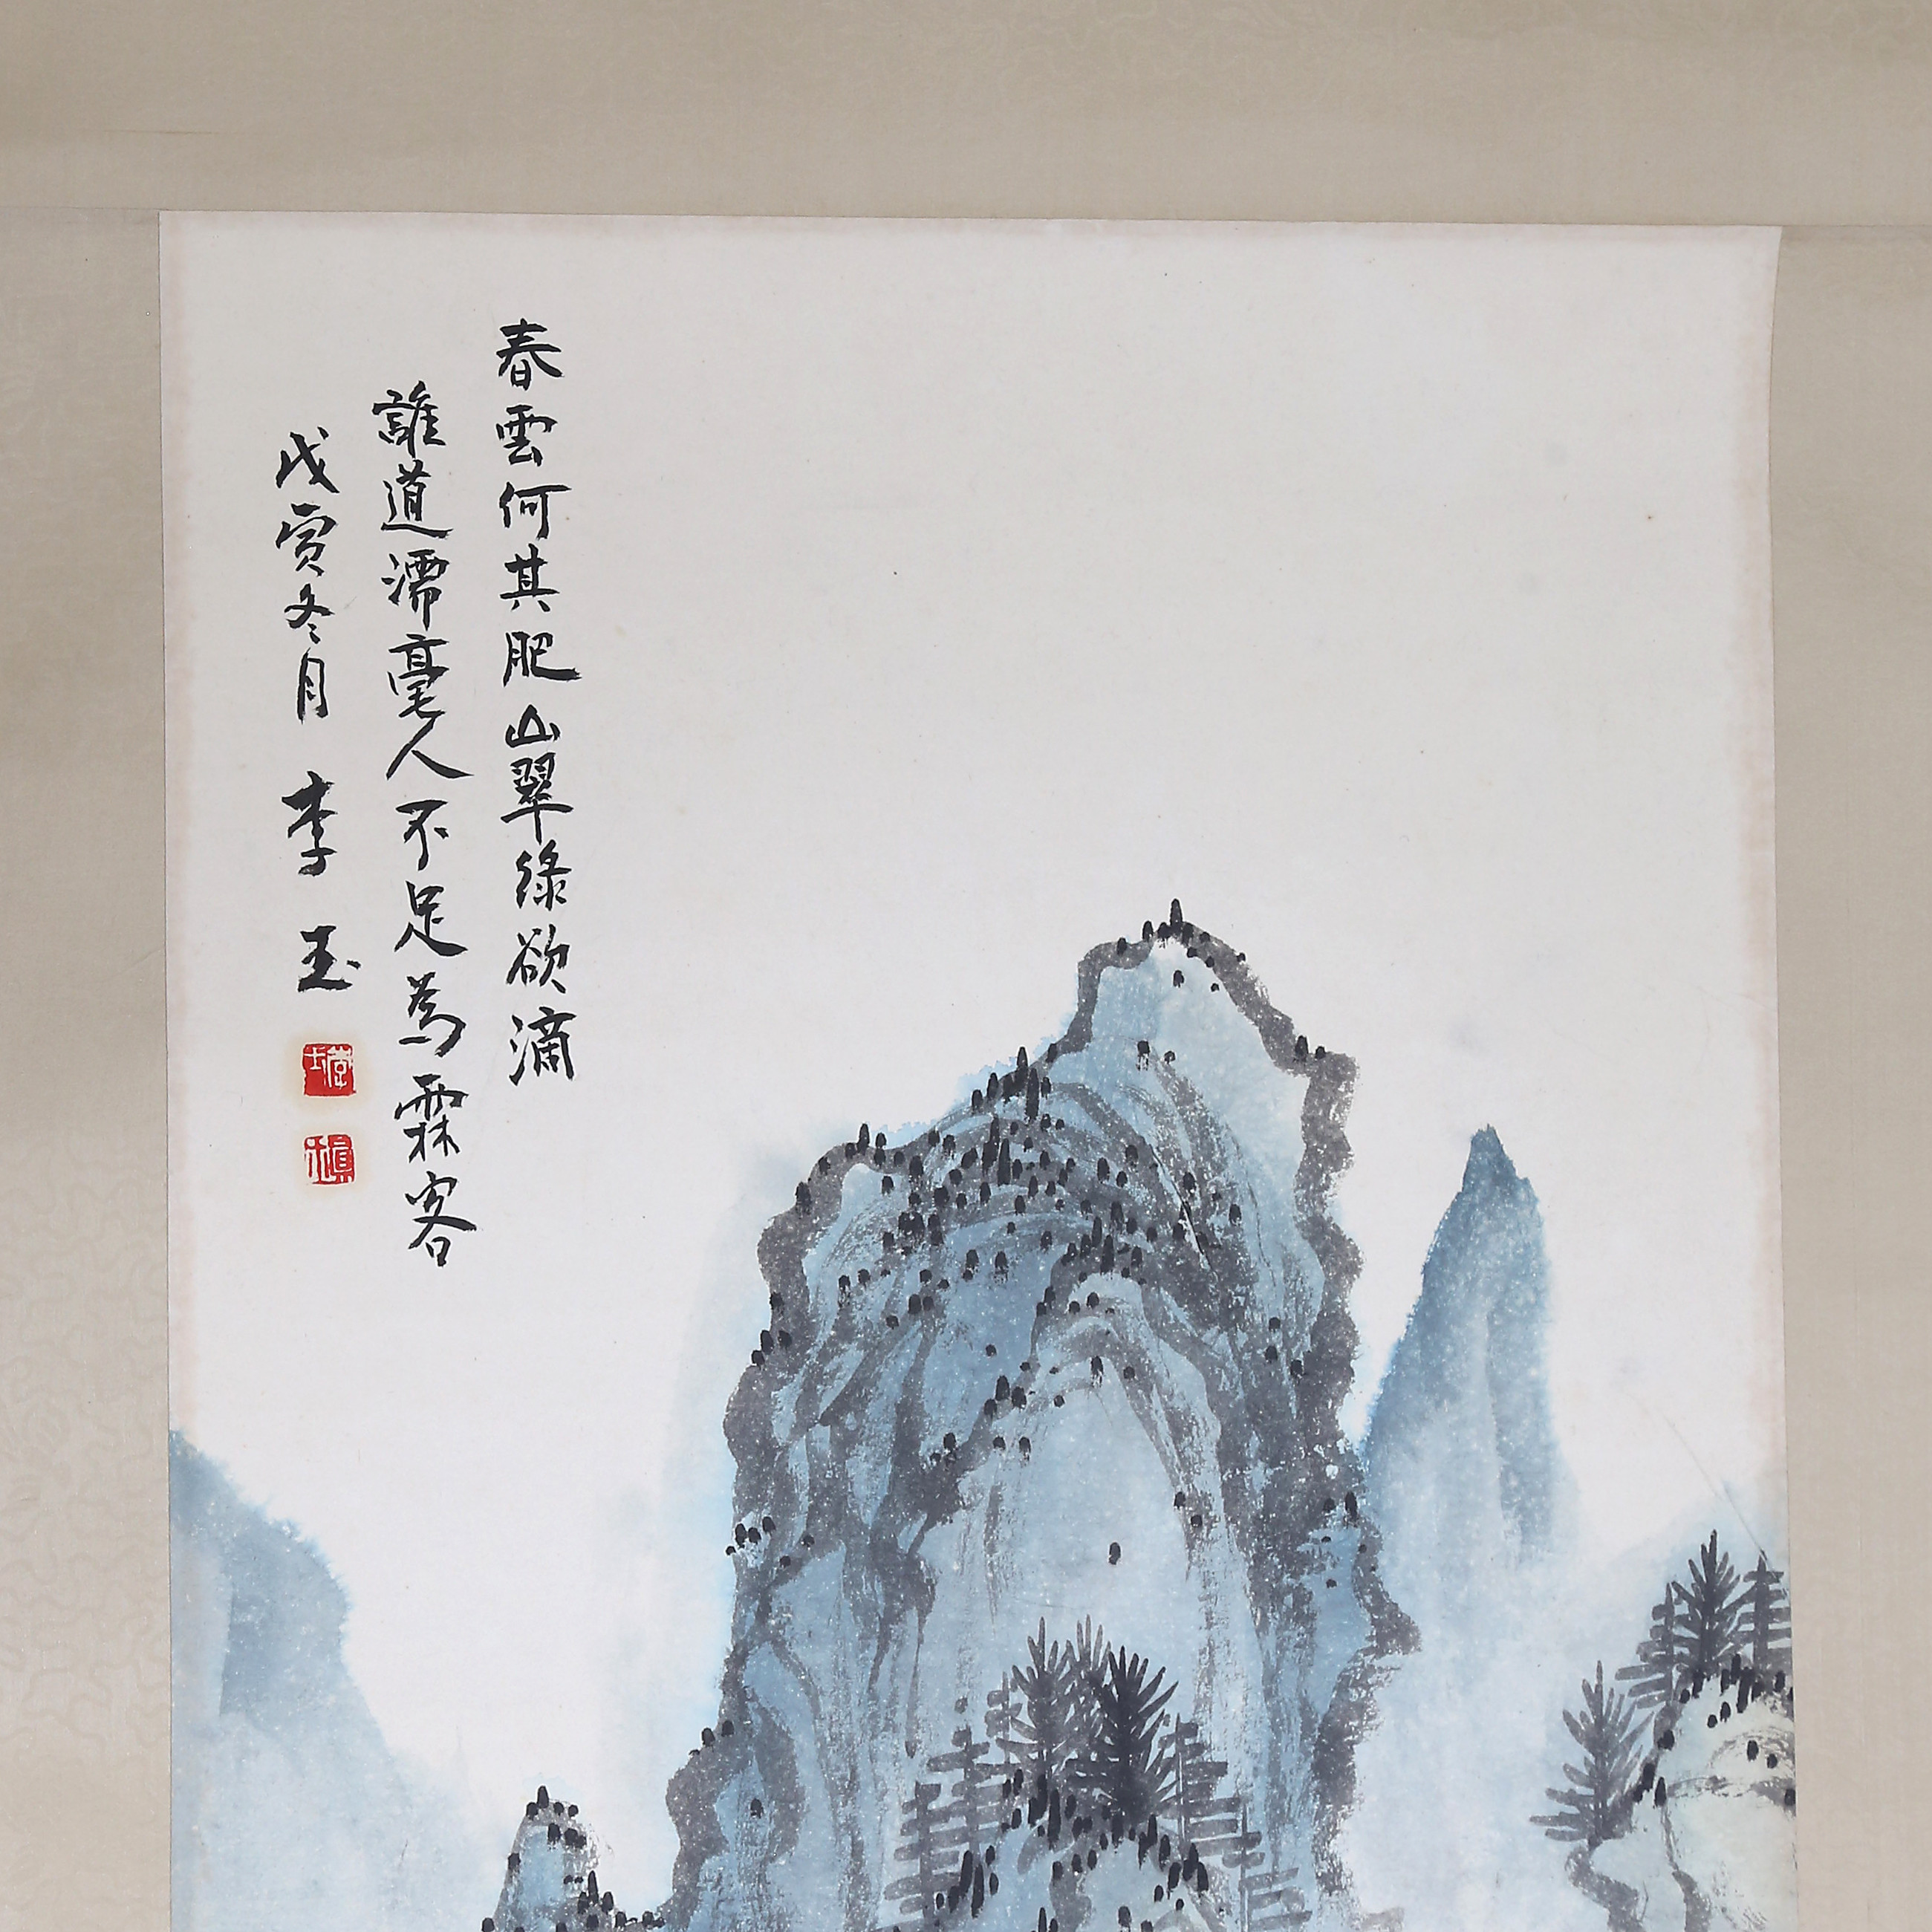 春雲何其肥山翠綠欲滴
誰道濡毫人不足為霖客
戊寅冬月 李玉